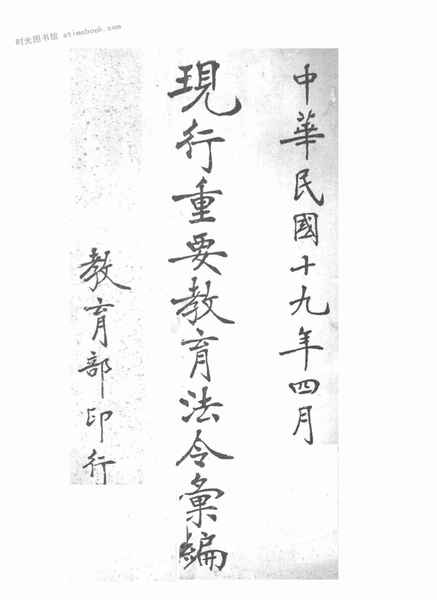 时光图书馆 atimebook.com
中華民國十九年四月
現行重要教育法令彙編
教育部印行